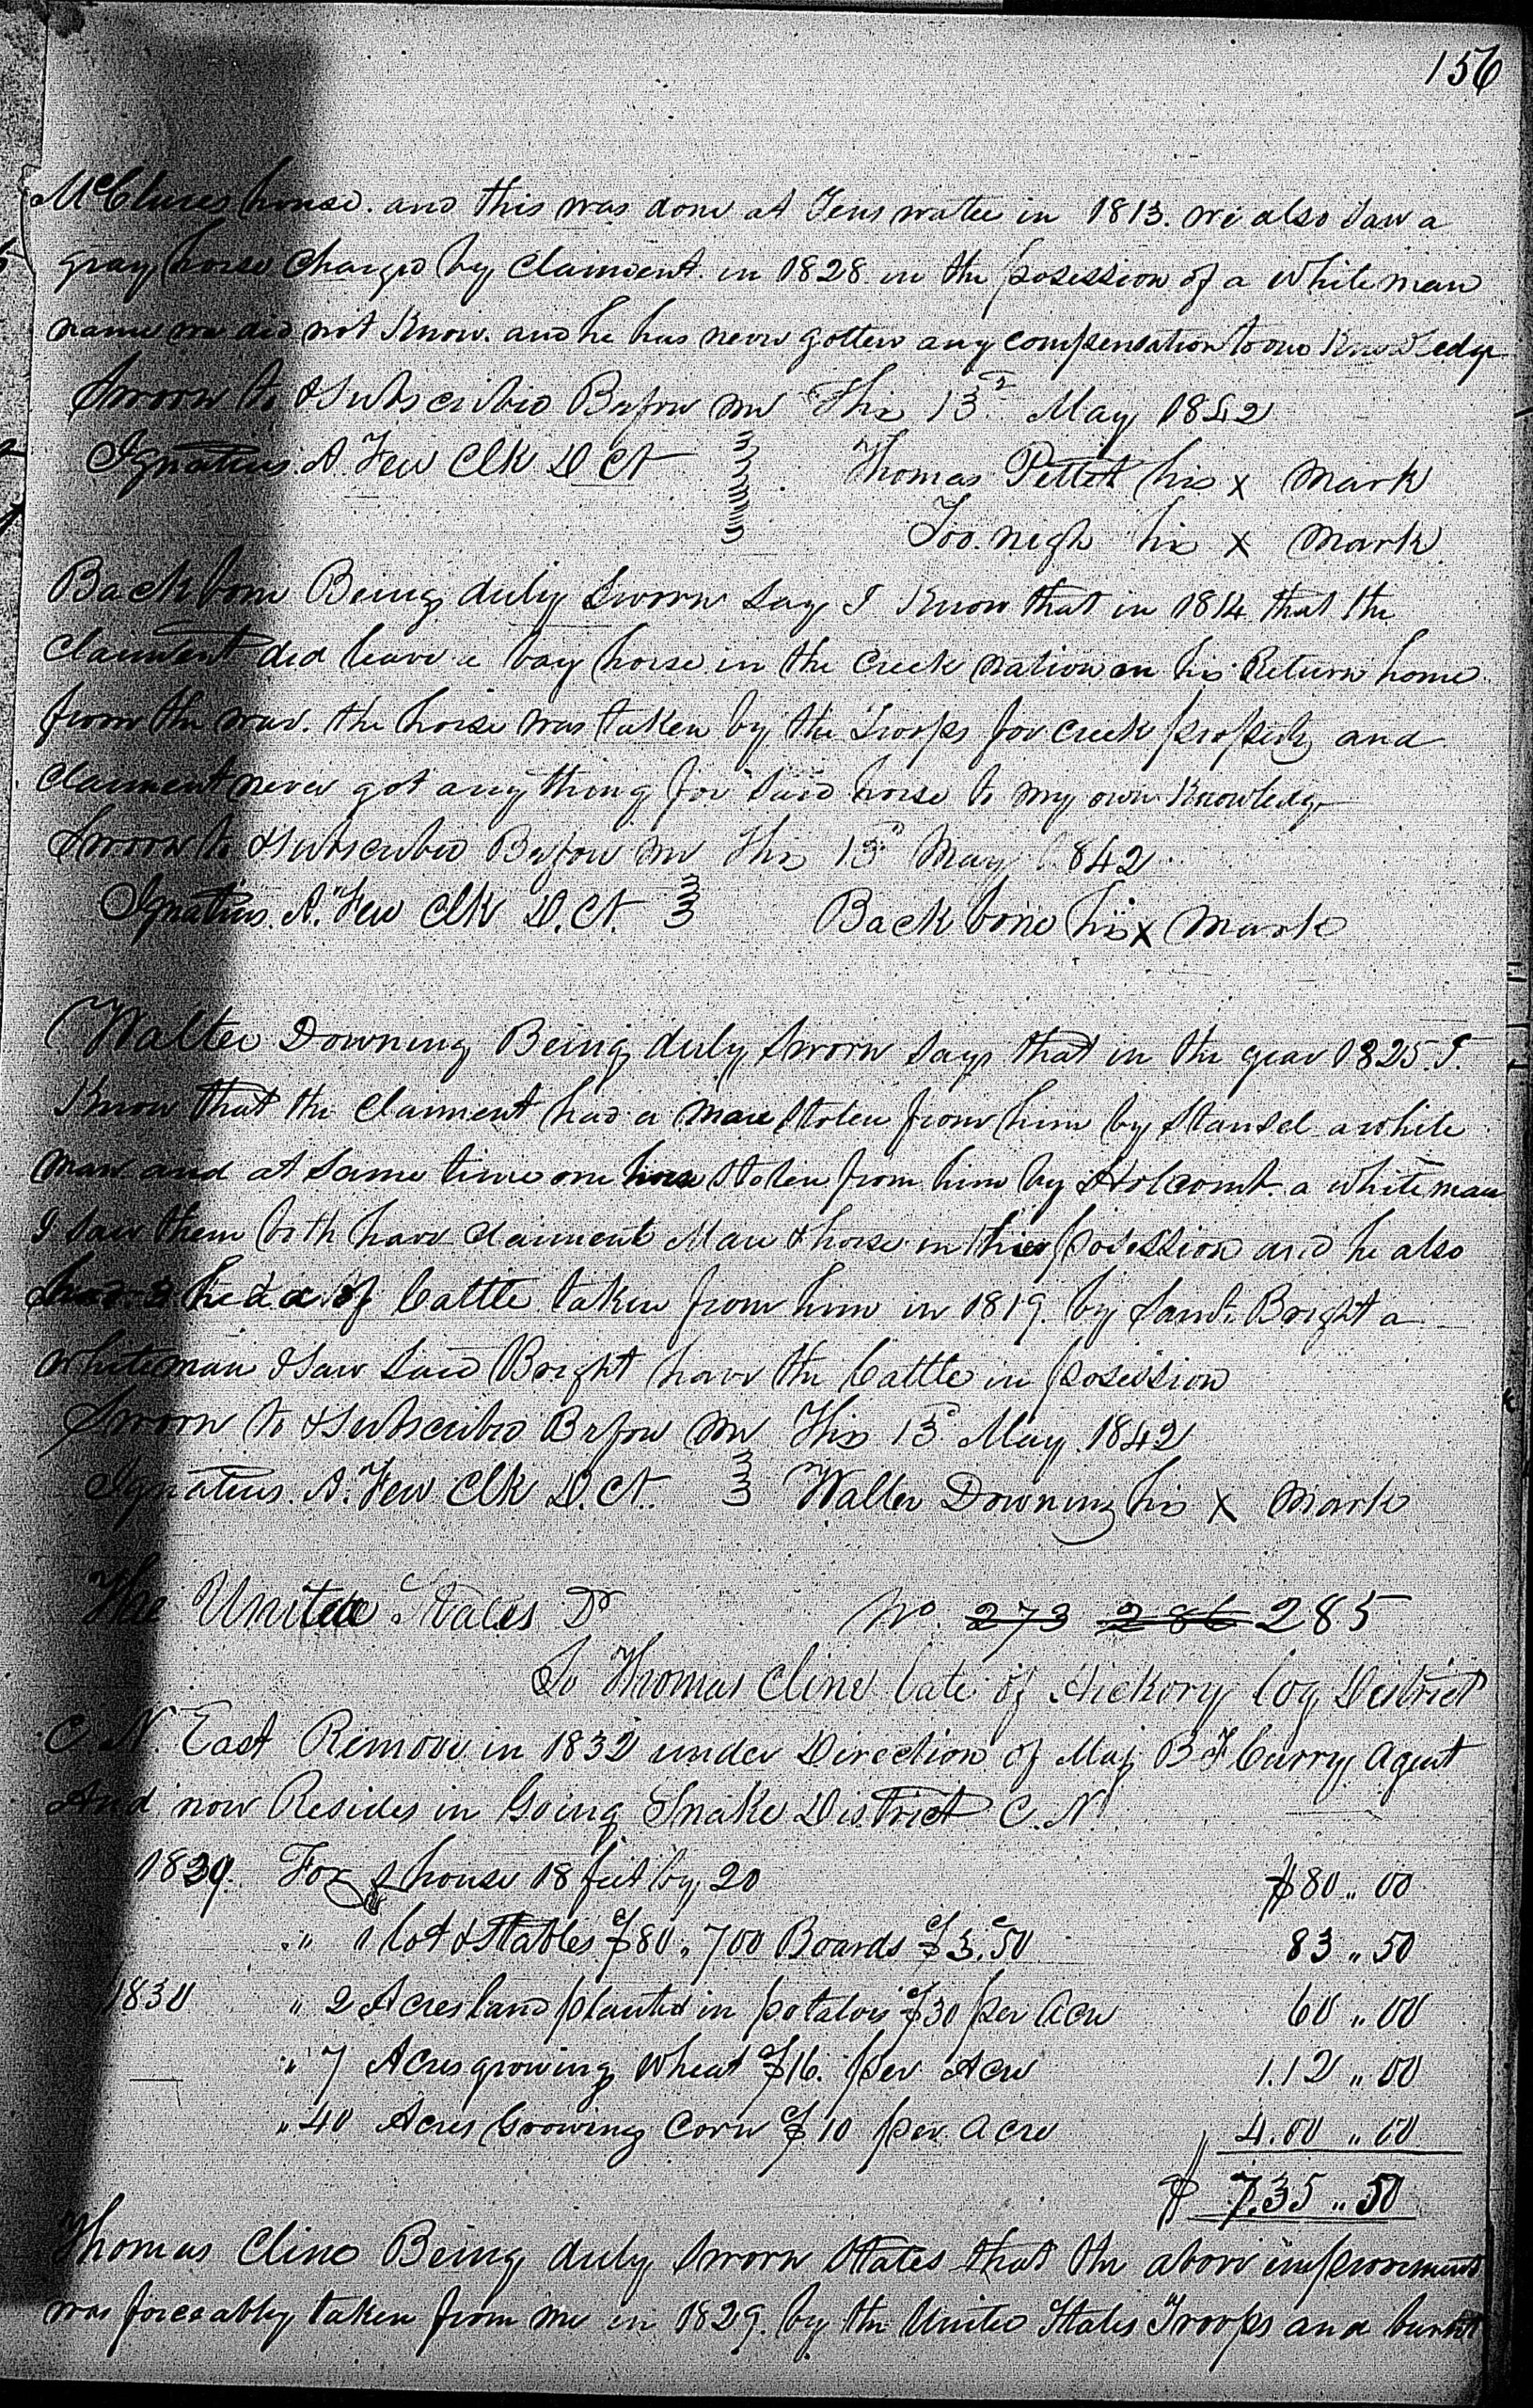 156
McClures house. and this was done at Tens watee in 1813. we also saw a
gray horse charged by claiment in 1828 in the posession of a white man
name we did not know. and he has never gotten any compensation to our Knowledge
Sworn to & Subscribed Before me This 13th May 1842
Ignatius. A. Few Clk D. Ct Thomas Pettet his x mark
Too. nigh his x mark
Back bone Being duly Sworn say I know that in 1814 that the
claiment did leave a bay horse in the Creek nation on his Return home
from the war. the horse was taken by the Troops for creek property and
claiment never got any thing for said horse to my own Knowledge
Sworn to & Subscribed Before me This 13th May 1842
Ignatius. A. Few Clk D. Ct. Back bone his x mark
Walter Downing Being duly Sworn says that in the year 1825. I
Know that the claiment had a mare stolen from him by Stansel a white
man and at same time one horse stolen from him by Holcomb. a white man
I saw them both have claiment Mare & horse in their posession and he also
had 3 head of Cattle taken from him in 1819. by Saml. Bright a
whiteman I saw said Bright have the Cattle in posission
Sworn to & Subscribed Before me This 13th May 1842
Ignatius. A. Few Clk D. Ct. Walter Downing his x mark
The United States Dr No. 273 286 285
To Thomas Cline late of Hickory log District
C. N. East Remove in 1832 under Direction of Maj B F Curry Agent
And now Resides in Going Snake District C. N.
1829. For 1 house 18 feet by 20 $80 ,, 00
,, 1 lot & Stables $80. 700 Boards $3.50 83 ,, 50
1830 ,, 2 Acres land planted in potatoes $30 per Acre 60 ,, 00
,, 7 Acres growing wheat $16. per Acre 1.12 ,, 00
,, 40 Acres Growing Corn $10 per Acre 4.00 ,, 00
$ 7.35 ,, 50
Thomas Cline Being duly Sworn States that the above improvement
was forceably taken from me in 1829. by the United States Troops and burnt